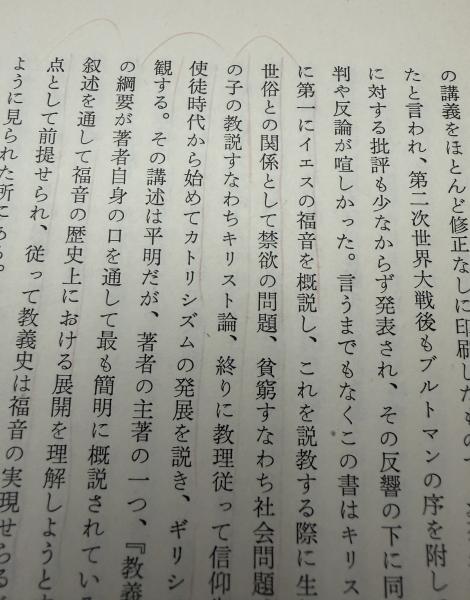 の講義をほとんど修正なしに印刷したもの
たと言われ、第二次世界大戦後もブルトマンの序を附し
に対する批評も少なからず発表され、その反響の下に同
判や反論が喧しかった。言うまでもなくこの書はキリス
に第一にイエスの福音を概説し、これを説教する際に生
世俗との関係として禁欲の問題、貧窮すなわち社会問題
の子の教説すなわちキリスト論、終りに教理従って信仰
使徒時代から始めてカトリシズムの発展を説き、ギリシ
観する。その講述は平明だが、著者の主著の一つ、『教義
の綱要が著者自身の口を通して最も簡明に概説されてい
叙述を通して福音の歴史上における展開を理解しようと
点として前提せられ、従って教義史は福音の実現せらる
ように見られた所にある。